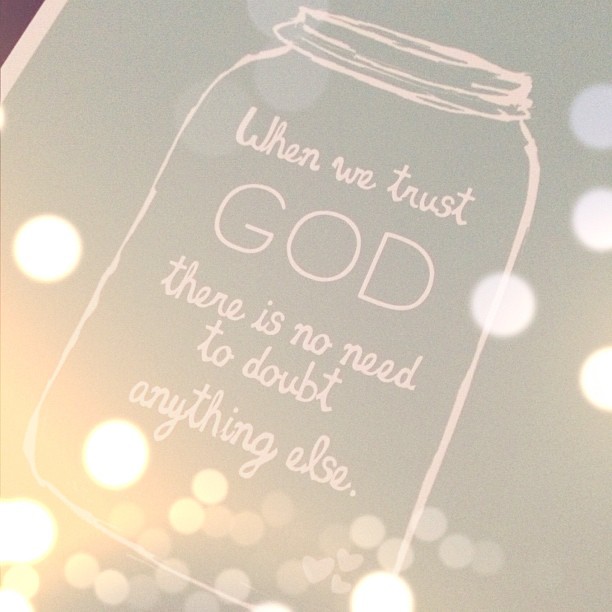 When we trust
GOD
there is no need
to doubt
anything else.